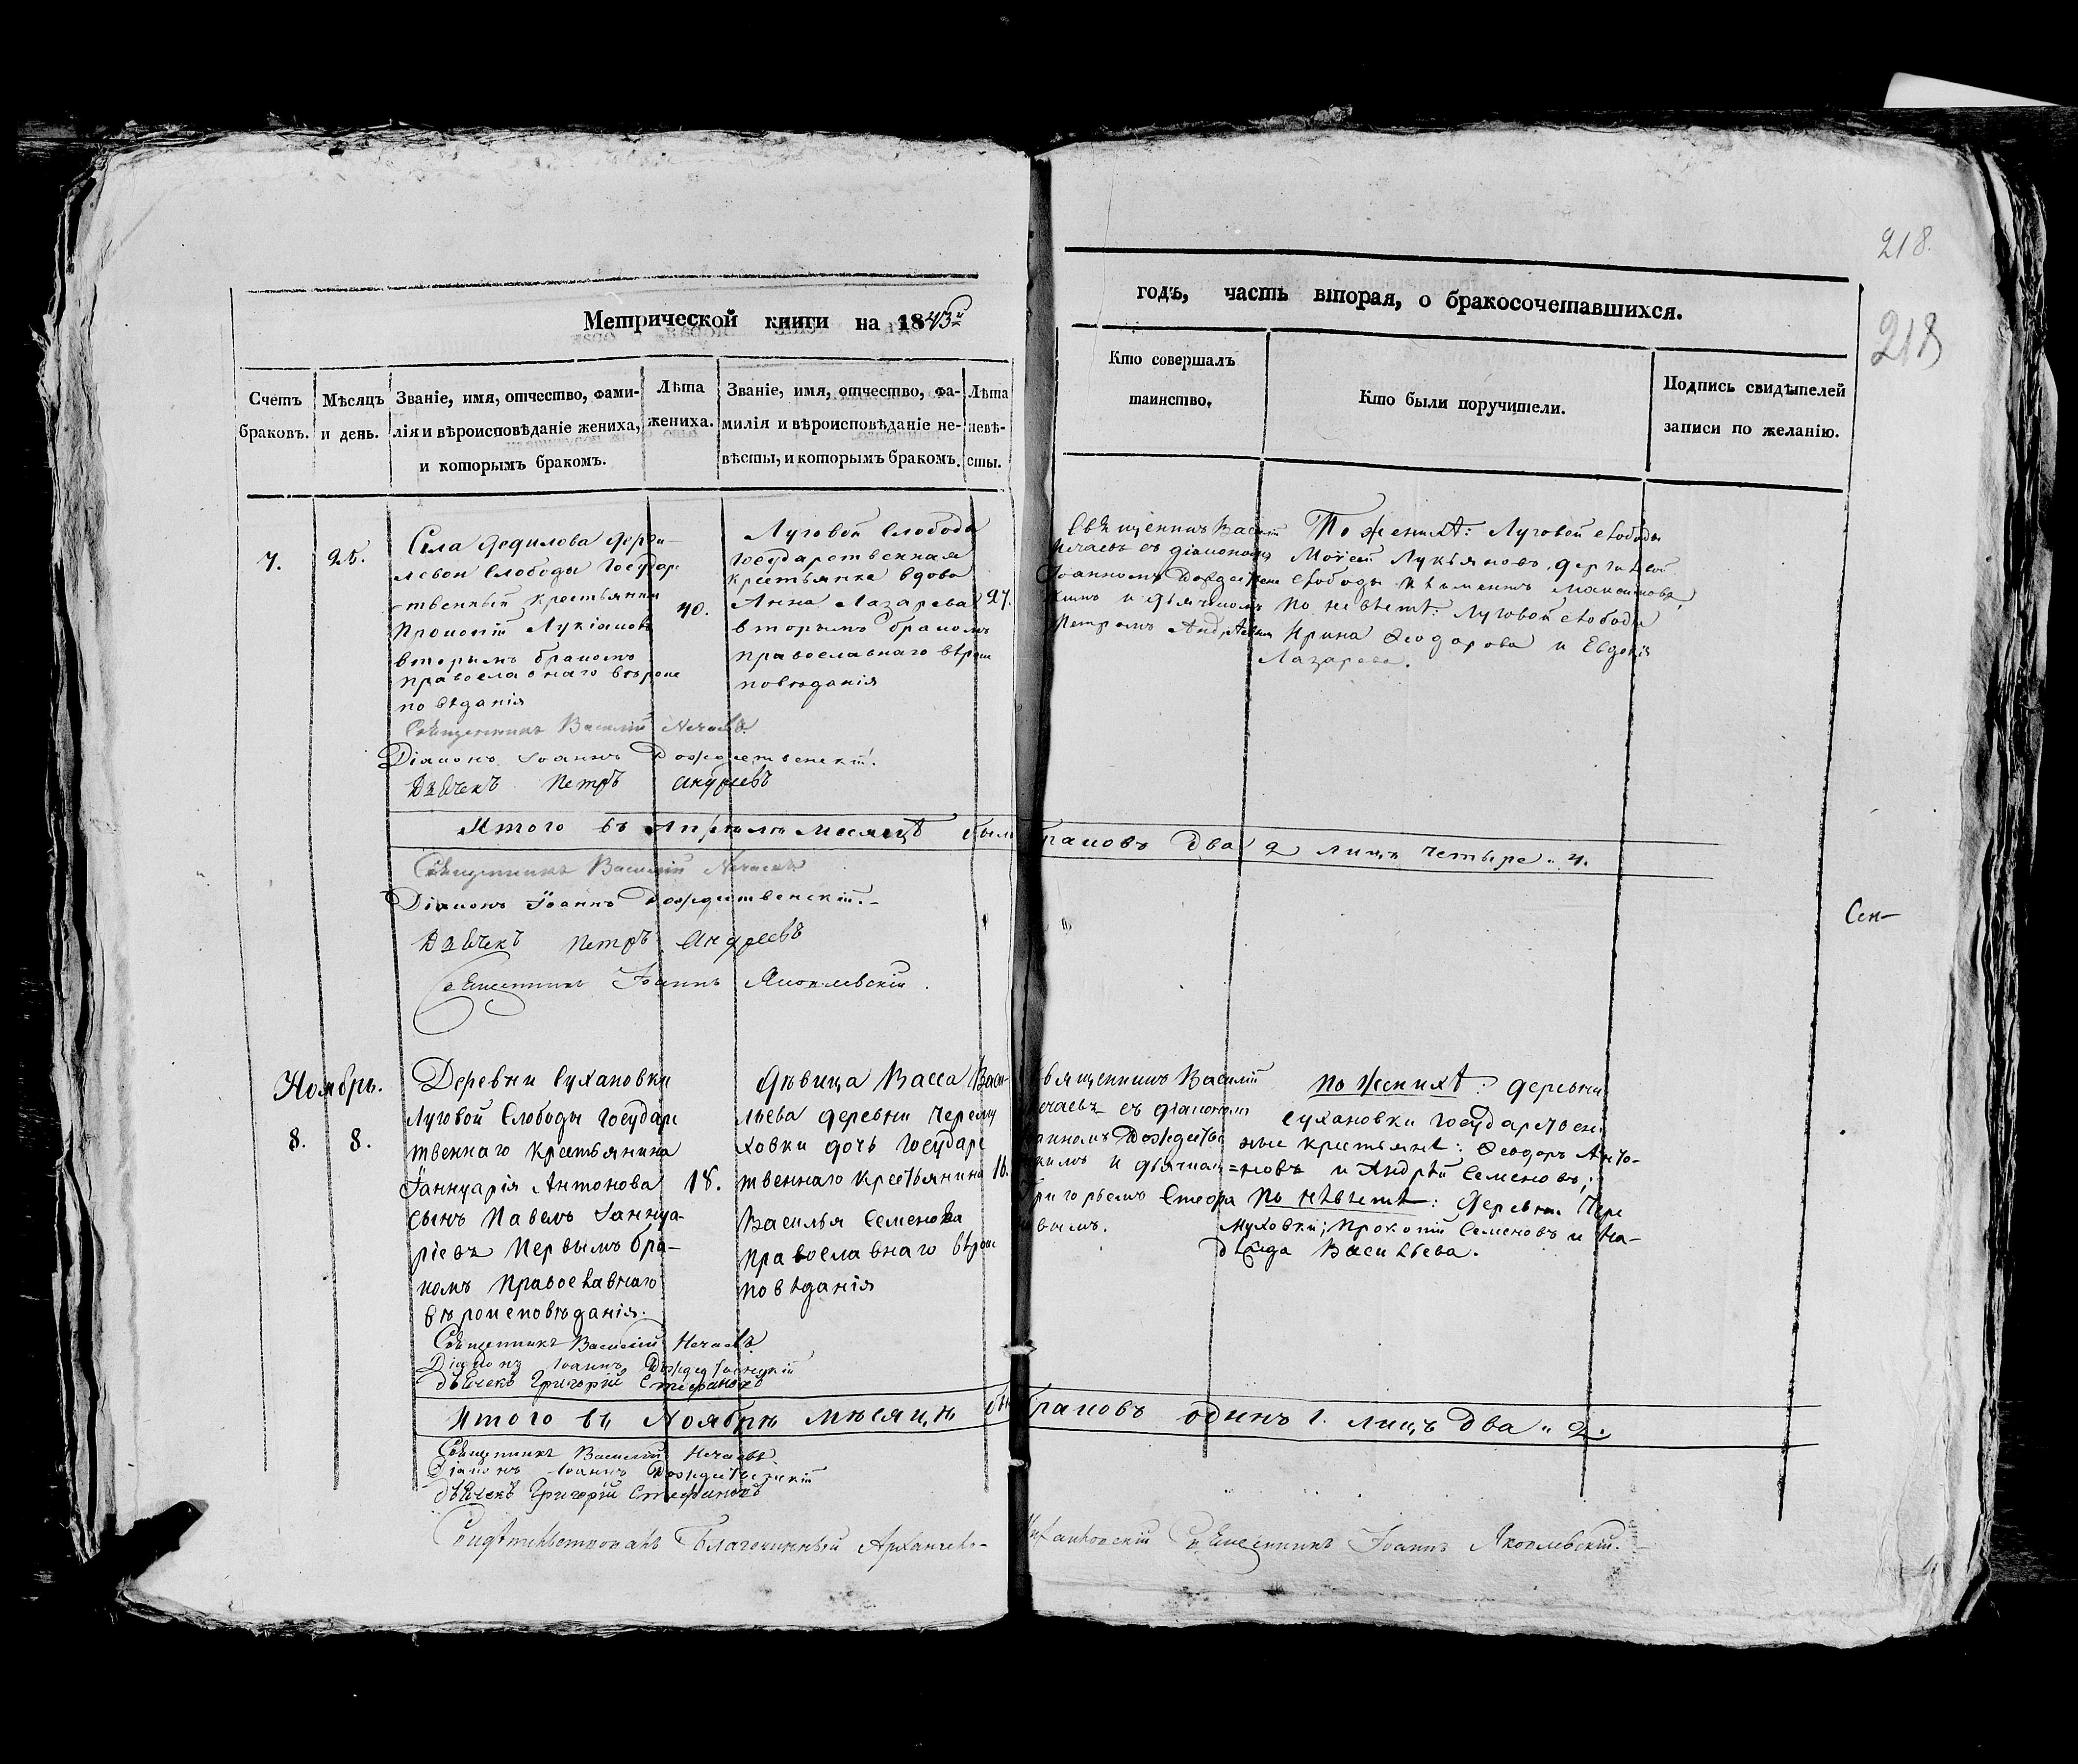 218.
218
Метрической книги на 1843й
годъ, часть вторая, о бракосочетавшихся.
Счетъ браковъ.
Мѣсяцъ и день.
Званіе, имя, отчество, фами-
лія и вѣроисповѣданіе жениха,
и которымъ бракомъ.
Лѣта
жениха.
Званіе, имя, отчество, фа-
милія и вѣроисповѣданіе не-
вѣсты, и которымъ бракомъ.
Лѣта
невѣ-
сты.
Кто совершалъ
таинство.
Кто были поручители.
Подпись свидѣтелей
записи по желанію.
7.
25.
Села Федилова
левой Слободы Государ
ственный крестьянинъ
Прокопій Лукіановъ
вторымъ бракомъ
православнаго вѣроис
повѣданія
40.
Луговой Слободы
Государственная
крестьянка вдова
Анна Лазарева
вторымъ бракомъ
православнаго вѣроис
повѣданія
27.
Священникъ Василій
Нечаевъ съ діакономъ
Іоанномъ Рождествен
скимъ и дьячкомъ
Петромъ Андреевым
По женихѣ: Луговой слободы
Моисей Лукьяновъ,
слободы Климентъ Максимовъ,
по невѣстѣ: Луговой слободы
Ирина Ѳеодорова и Евдокія
Лазарева.
Священникъ Василій Нечаевъ
Діаконъ Іоаннъ Рождественскій.
Дьячекъ Петръ Андреевъ
Итого въ Апрелѣ месяцѣ было браковъ два 2 лицъ четыре 4.
Священникъ Василій Нечаевъ
Діаконъ Іоаннъ Рождественскій.
Дьячекъ Петръ Андреевъ
Священникъ Іоаннъ Яковлевскій.
Сен-
Ноябрь.
8.
8.
Деревни Сухановки
Луговой Слободы Государс
твеннаго крестьянина
Іаннуарія Антонова
сынъ Павелъ Іаннуа-
ріевъ первымъ бра-
комъ православнаго
вѣроисповѣданія.
18.
Дѣвица Васса Васи-
льева деревни Черему
ховки дочь Государс
твеннаго крестьянина
Василья Семенова
православнаго вѣроис
повѣданія
16.
вященникъ Василій
ечаевъ съ діакономъ
анномъ Рождестве
кимъ и дьячком
ригорьемъ Стефа
вымъ.
по женихѣ: деревни
Сухановки Государствен
ные крестьяне: Ѳеодоръ Анто-
=новъ и Андрей Семеновъ;
по невѣстѣ: Деревни Чере
муховки; Прокопій Семеновъ и На-
дѣжда Васильева.
Священникъ Василій Нечаевъ
Діаконъ Іоаннъ Рождественскій
дьячекъ Григорій Стефановъ
Итого въ Ноябрѣ мѣсяцѣ бы браковъ одинъ 1. лицъ два 2.
Священникъ Василій Нечаевъ
Діаконъ Іоаннъ Рождественскій
дьячекъ Григорій Стефановъ
Свидѣтельствовалъ Благочинный Архангело-
Священникъ Іоаннъ Яковлевскій.